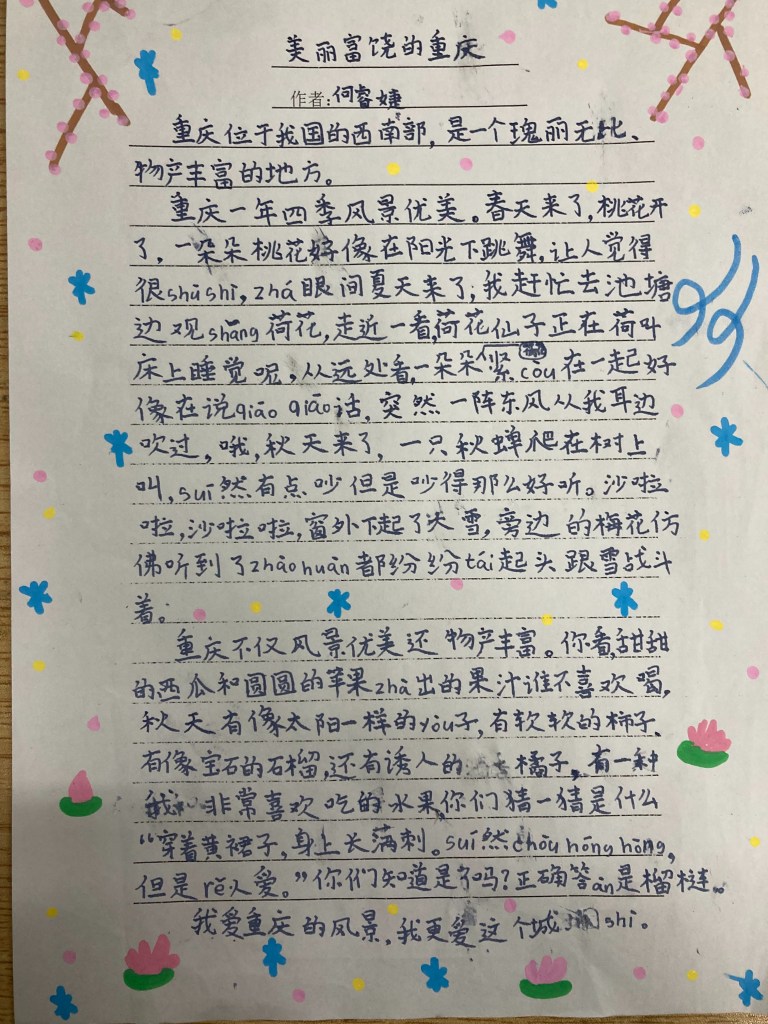 美丽富饶的重庆
作者:何睿婕
重庆位于我国的西南部，是一个瑰丽无比、
物产丰富的地方。
重庆一年四季风景优美。春天来了，桃花开
了，一朵朵桃花好像在阳光下跳舞，让人觉得
很shūshì，zhǎ眼间夏天来了，我赶忙去池塘
边观shǎng荷花，走近一看，荷花仙子正在荷叶
床上睡觉呢，从远处看，一朵朵紧còu在一起好
像在说qiāo qiāo话，突然一阵东风从我耳边
吹过，哦，秋天来了，一只秋蝉爬在树上
叫，suī然有点吵但是吵得那么好听。沙啦
啦，沙啦啦，窗外下起了大雪，旁边的梅花仿
佛听到了zhāohuàn都纷纷tái起头跟雪战斗
着。
重庆不仅风景优美还物产丰富。你看，甜甜
的西瓜和圆圆的苹果zhà出的果汁谁不喜欢喝，
秋天有像太阳一样的yòu子，有软软的柿子、
有像宝石的石榴，还有诱人的橘子，有一种
我非常喜欢吃的水果，你们猜一猜是什么
“穿着黄裙子，身上长满刺。suī然chòu hōng hōng，
但是rě人爱。”你们知道是了吗？正确答àn是榴梿。
我爱重庆的风景，我更爱这个城shì。